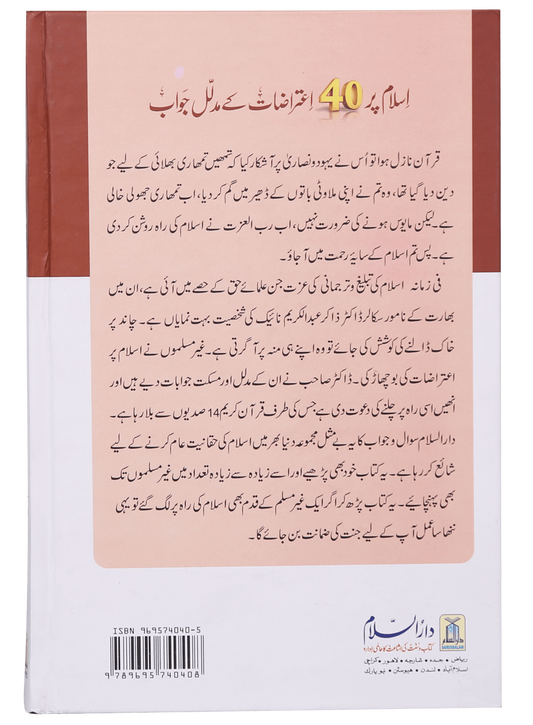 اسلام پر 40 اعتراضات کے مدلّل جواب
قرآن نازل ہوا تو اُس نے یہود و نصاریٰ پر آشکار کیا کہ تمھیں تمھاری بھلائی کے لیے جو
دین دیا گیا تھا، وہ تم نے اپنی ملاوٹی باتوں کے ڈھیر میں گم کر دیا، اب تمھاری جھولی خالی
ہے۔ لیکن مایوس ہونے کی ضرورت نہیں، اب رب العزت نے اسلام کی راہ روشن کر دی
ہے۔ پس تم اسلام کے سایۂ رحمت میں آ جاؤ۔
فی زمانہ اسلام کی تبلیغ و ترجمانی کی عزت جن علمائے حق کے حصے میں آئی ہے، ان میں
بھارت کے نامور سکالر ڈاکٹر ذاکر عبدالکریم نائیک کی شخصیت بہت نمایاں ہے۔ چاند پر
خاک ڈالنے کی کوشش کی جائے تو وہ اپنے ہی منہ پر آ گرتی ہے۔ غیر مسلموں نے اسلام پر
اعتراضات کی بوچھاڑ کی۔ ڈاکٹر صاحب نے ان کے مدلل اور مسکت جوابات دیے ہیں اور
انھیں اسی راہ پر چلنے کی دعوت دی ہے جس کی طرف قرآن کریم 14 صدیوں سے بلا رہا ہے۔
دارالسلام سوال و جواب کا یہ بے مثل مجموعہ دنیا بھر میں اسلام کی حقانیت عام کرنے کے لیے
شائع کر رہا ہے۔ یہ کتاب خود بھی پڑھیے اور اسے زیادہ سے زیادہ تعداد میں غیر مسلموں تک
بھی پہنچائیے۔ یہ کتاب پڑھ کر اگر ایک غیر مسلم کے قدم بھی اسلام کی راہ پر لگ گئے تو یہی
ننھا سا عمل آپ کے لیے جنت کی ضمانت بن جائے گا۔
ISBN 969574040-5
9 789695 740408
دارالسلام
کتاب و سنت کی اشاعت کا عالمی ادارہ
ریاض • جدہ • شارجہ • لاہور • کراچی
اسلام آباد • لندن • ہیوسٹن • نیو یارک
دارالسلام
DARUSSALAM